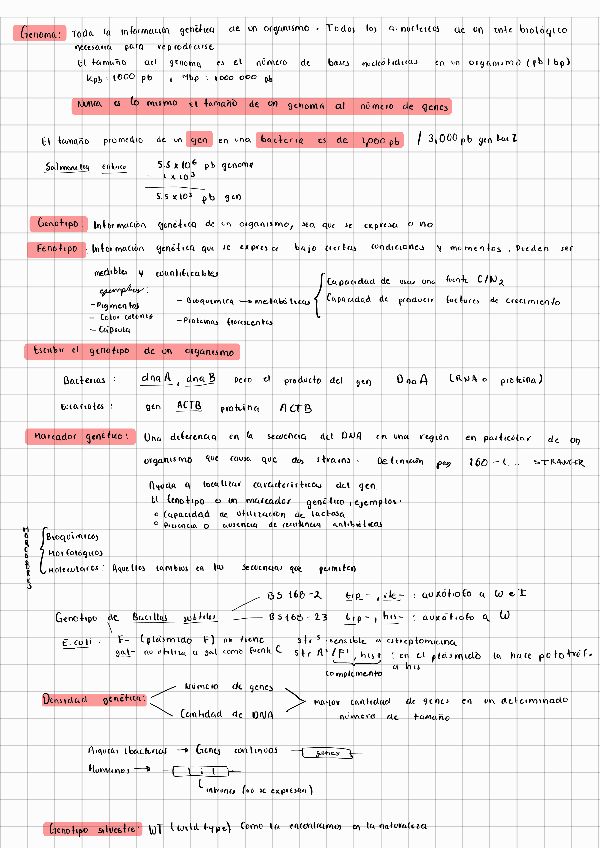 Genoma: Toda la información genética de un organismo. Todos los a. nucleicos de un ente biológico
necesaria para reproducirse
El tamaño del genoma es el número de bases nucleotídicas en un organismo (pb/bp)
Kpb: 1000 pb , Mbp: 1000 000 pb
Nunca es lo mismo el tamaño de un genoma al número de genes
El tamaño promedio de un gen en una bacteria es de 1,000 pb / 3,000 pb gen
Salmonella 5.5 x 10^6 pb genoma
1 x 10^3
5.5 x 10^3 pb gen
Genotipo: Información genética de un organismo, sea que se expresa o no
Fenotipo: Información genética que se expresa bajo ciertas condiciones y momentos. Pueden ser
medibles y cuantificables
ejemplos:
-Pigmentos
- Color colonia
- Cápsula
- Bioquímica → metabólicas
-Proteínas florescentes
Capacidad de usar una fuente C/N2
Capacidad de producir factores de crecimiento
Escribir el genotipo de un organismo
Bacterias: dnaA, dnaB pero el producto del gen DnaA (RNA o proteína)
Eucariotes: gen ACTB proteína ACTB
Marcador genético: Una diferencia en la secuencia del DNA en una región en particular de un
organismo que causa que dos strains. Definición pag 160 -
Ayuda a localizar características del gen
El fenotipo o un marcador genético, ejemplos:
o Capacidad de utilización de lactosa
o Presencia o ausencia de resistencia antibióticos
MARCADORES
Bioquímicos
Morfológicos
Moleculares: Aquellos cambios en las secuencias que permiten
BS168-2 trp-, : auxótrofo a W e I
Genotipo de Bacillus subtilis BS168-23 trp-, his- : auxótrofo a W
E.coli. F- (plásmido F) no tiene str s sensible a estreptomicina
gal- no utiliza a gal como fuente C str A (F', his+ : en el plásmido la hace
complemento a his
Densidad genética: Número de genes
Cantidad de DNA
mayor cantidad de genes en un determinado
número de tamaño
Arqueas/bacterias → Genes continuos genes
Humanos →
intrones (no se expresan)
Genotipo silvestre: WT (wild type) Como la encontramos en la naturaleza